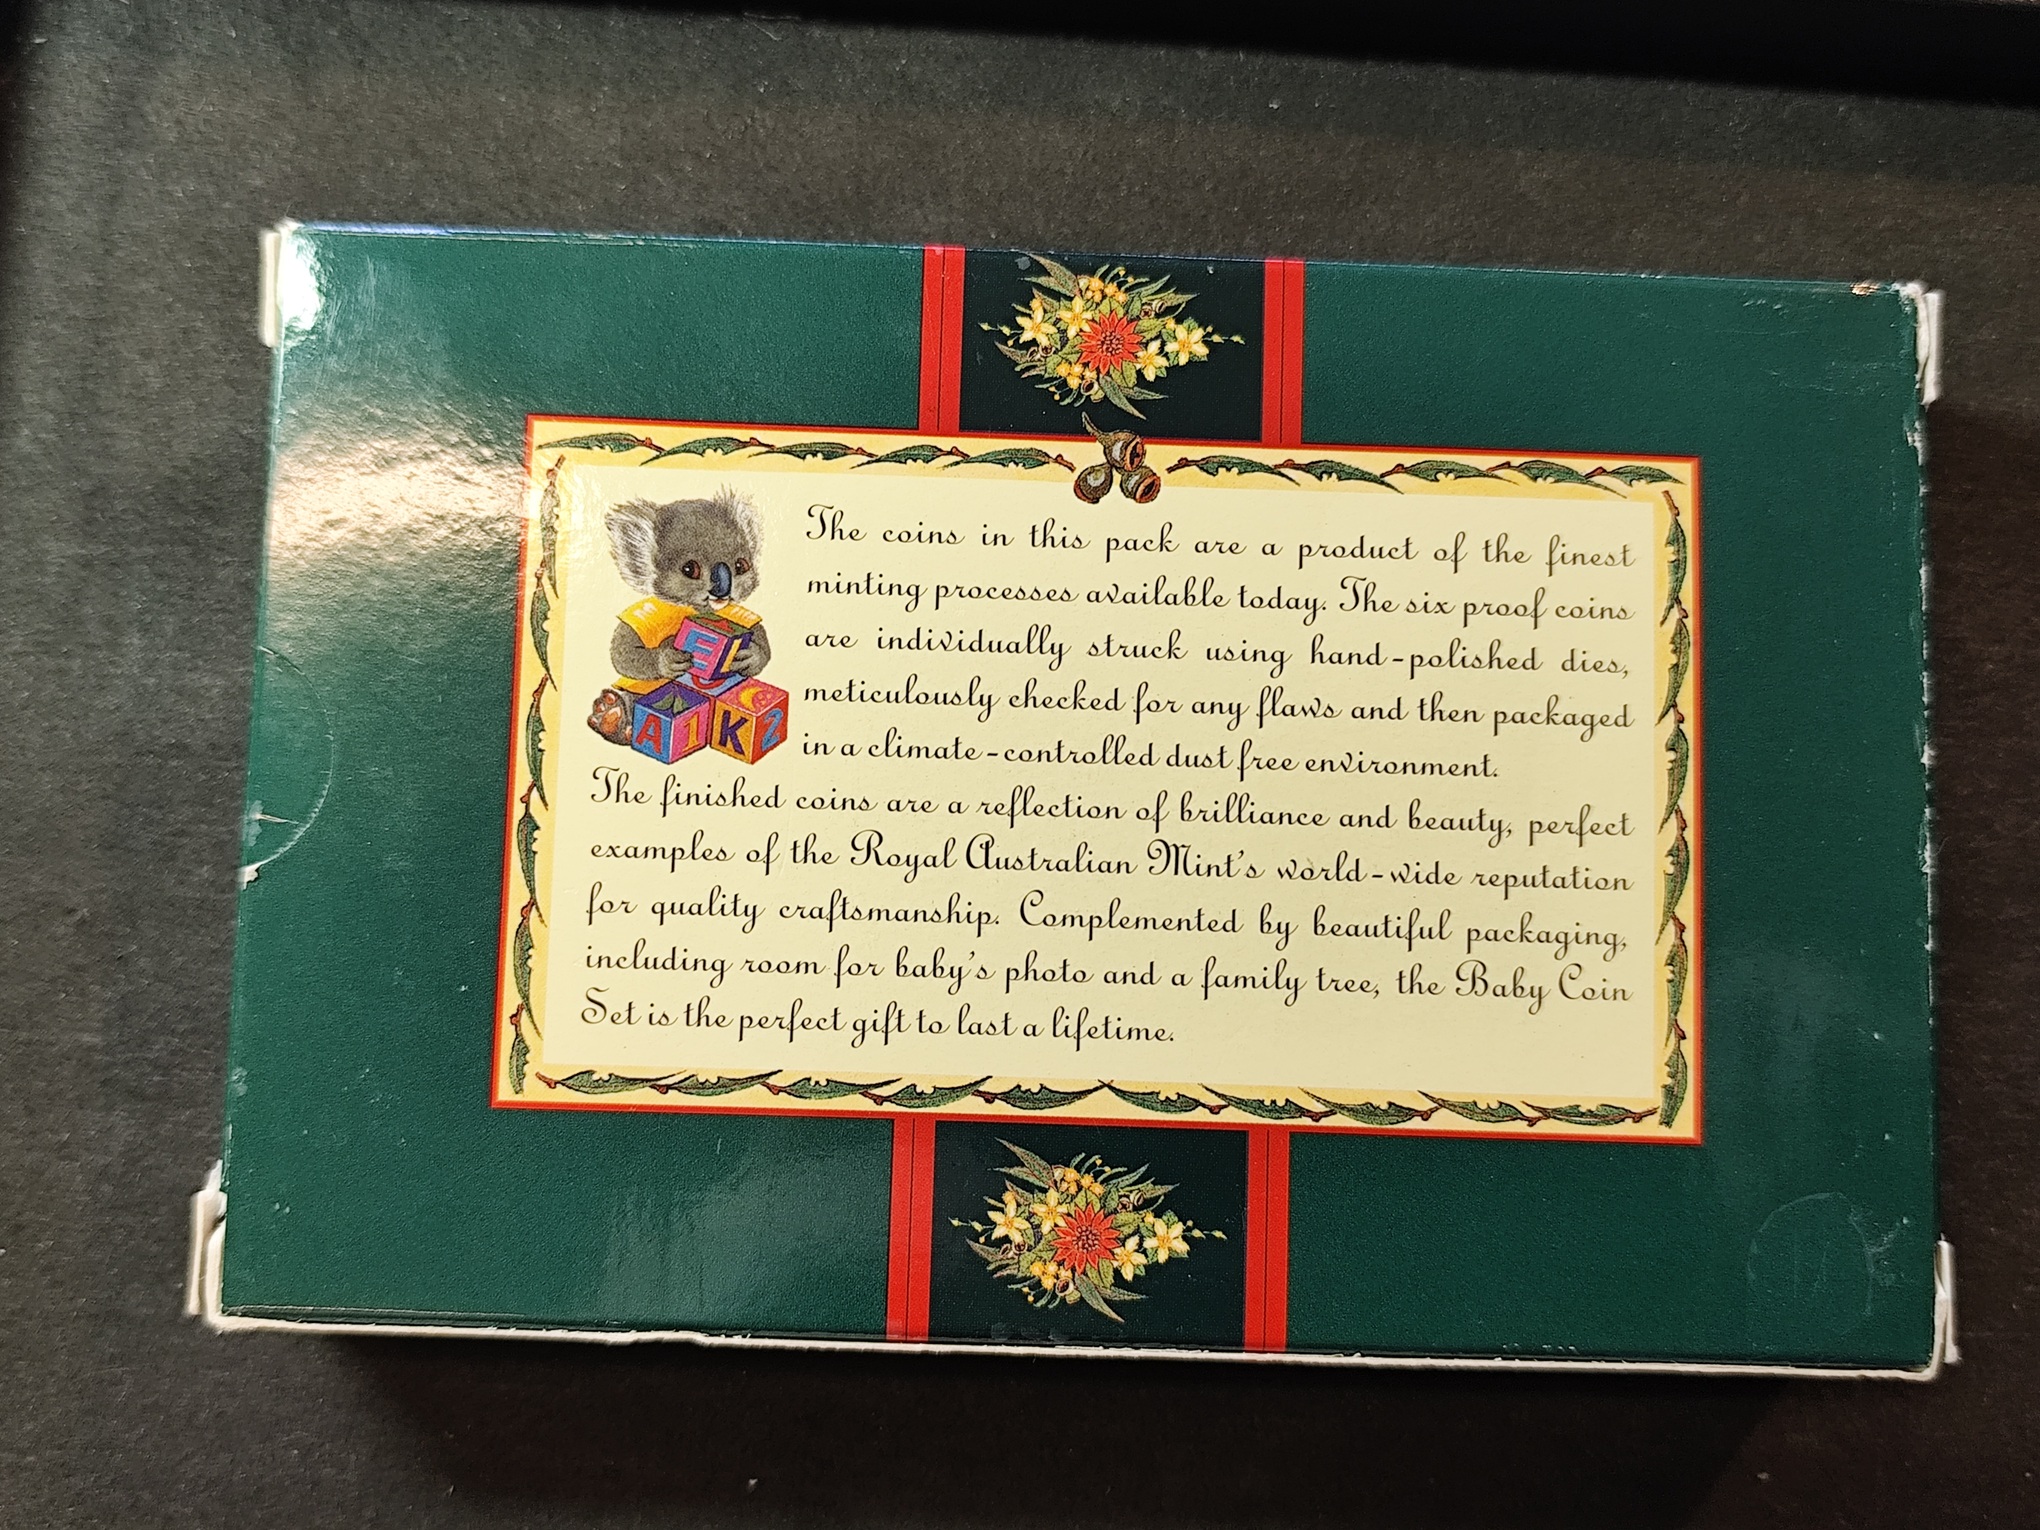 The coins in this pack are a product of the finest
minting processes available today. The six proof coins
are individually struck using hand-polished dies,
meticulously checked for any flaws and then packaged
in a climate-controlled dust free environment.
The finished coins are a reflection of brilliance and beauty, perfect
examples of the Royal Australian Mint's world-wide reputation
for quality craftsmanship. Complemented by beautiful packaging,
including room for baby's photo and a family tree, the Baby Coin
Set is the perfect gift to last a lifetime.
E L
A 1 K 2